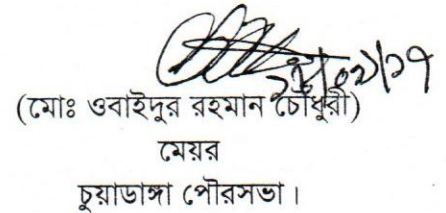 (মোঃ ওবাইদুর রহমান চৌধুরী)
মেয়র
চুয়াডাঙ্গা পৌরসভা।